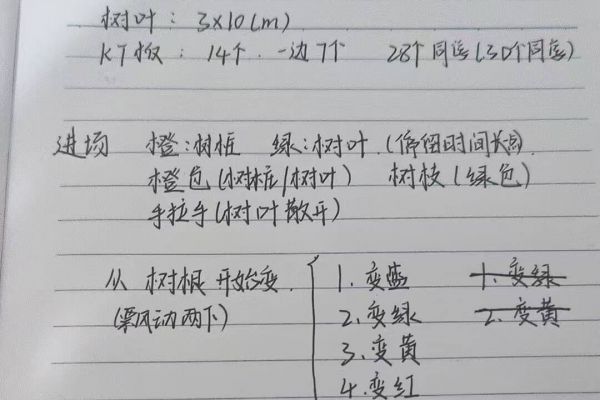 树叶：3×10(m)
KT板：14个 一边7个 28个同学(30个同学)
进场 橙:树框 绿:树叶(停留时间长点)
橙包(树框/树叶) 树枝(绿包)
手拉手(树叶散开)
从树根开始变 1.变蓝 1.变绿
(飘动两下) 2.变绿 2.变黄
3.变黄
4.变红